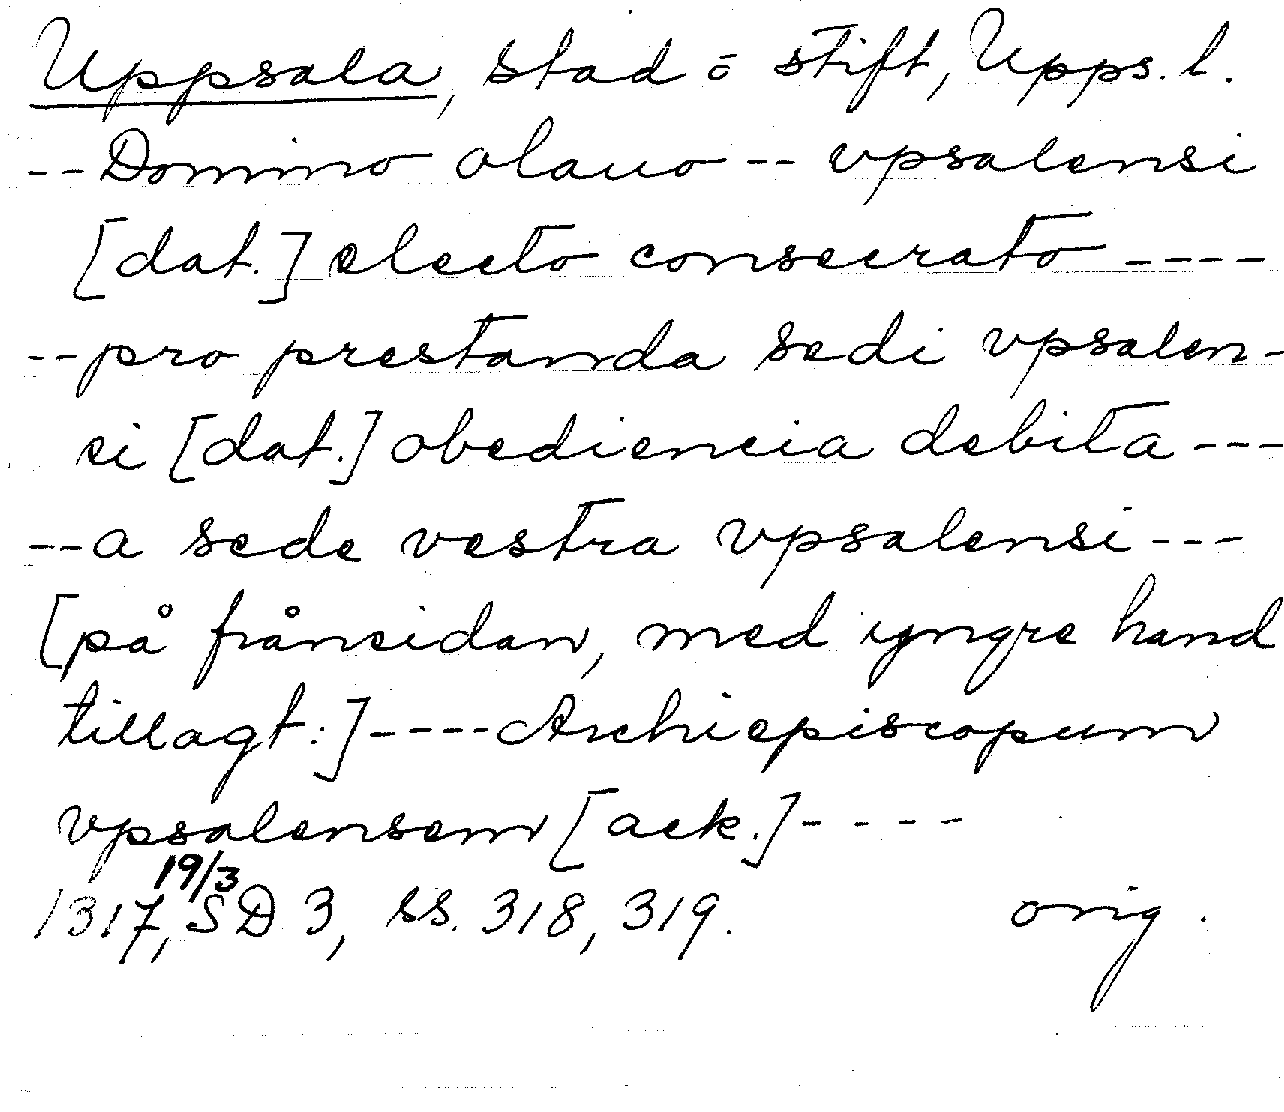 Uppsala, stad ō stift, Upps. l.
-- Domino olauo -- vpsalensi
[dat.] electo consecrato ----
-- pro prestanda sedi vpsalen-
si [dat.] obediencia debita ---
-- a sede vestra vpsalensi ---
[på frånsidan, med yngre hand
tillagt:] ---- Archiepiscopum
vpsalensem [ack.] ----
19/3
1317, SD 3, ss. 318, 319. orig.